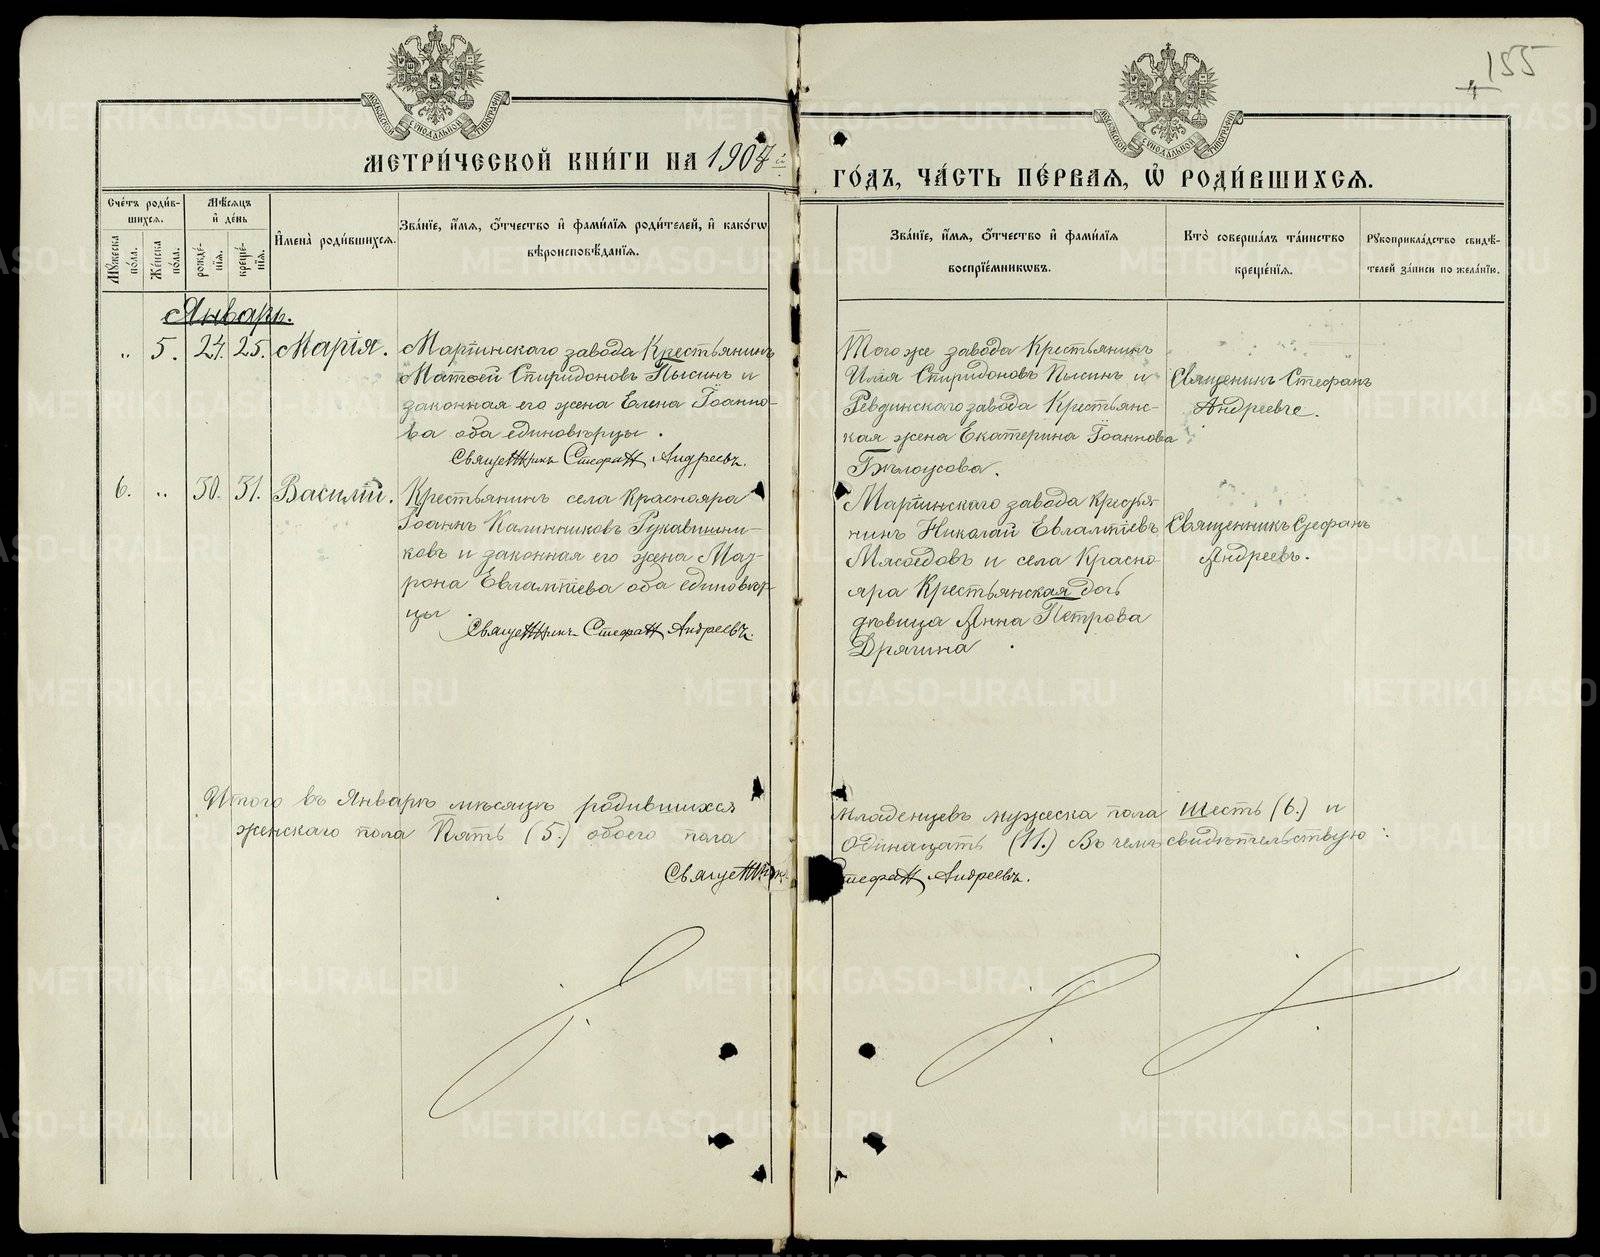 155
4
МОСКОВСКОЙ СѴНОДАЛЬНОЙ ТИПОГРАФІИ
МОСКОВСКОЙ СѴНОДАЛЬНОЙ ТИПОГРАФІИ
МЕТРИ́ЧЕСКОЙ КНИ́ГИ НА 1907 й
ГО́ДЪ, ЧА́СТЬ ПЕ́РВАЯ, Ѽ РОДИ́ВШИХСЯ.
Сче́тъ роди́в-
шихся.
Мѣ́сяцъ
и де́нь
Мꙋ́жеска
по́ла.
Же́нска
по́ла.
рожде́-
нїя.
креще́-
нїя.
Имена̀ роди́вшихся.
Зва́нїе, и́мя, о́тчество и фами́лїя роди́телей, и како́гѡ
вѣроисповѣ́данїя.
Зва́нїе, и́мя, о́тчество и фами́лїя
воспрїе́мникѡвъ.
Кто̀ соверша́лъ та́инство
креще́нїя.
Рꙋкоприкла́дство свидѣ́-
телей за́писи по жела́нїю.
Январь.
„ 5. 24. 25. Марія.
Маріинскаго завода Крестьянинъ
Матѳей Спиридоновъ Пысинъ и
законная его жена Елена Іоанно-
ва оба единовѣрцы.
Священникъ Стефанъ Андреевъ.
Того же завода Крестьянинъ
Илія Спиридоновъ Пысинъ и
Ревдинскаго завода Крестьянс-
кая жена Екатерина Іоаннова
Бѣлоусова.
Священникъ Стефанъ
Андреевъ.
6. „ 30. 31. Василій.
Крестьянинъ села Краснояра
Іоаннъ Калинниковъ Рукавишни-
ковъ и законная его жена Мат-
рона Евлампіева оба единовѣр-
цы
Священникъ Стефанъ Андреевъ.
Маріинскаго завода крестья-
нинъ Николай Евлампіевъ
Мясоедовъ и села Красно-
яра Крестьянская дочь
дѣвица Анна Петрова
Дрягина.
Священникъ Стефанъ
Андреевъ.
Итого въ Январѣ мѣсяцѣ родившихся младенцевъ мужеска пола Шесть (6.) и
женскаго пола Пять (5.) обоего пола Одинацать (11.) Въ чемъ свидѣтельствую:
Священникъ Стефанъ Андреевъ.
METRIKI.GASO-URAL.RU